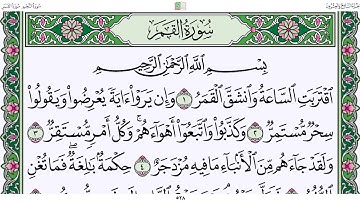 سُورَةُ القَمَرِ
بِسْمِ اللَّهِ الرَّحْمَٰنِ الرَّحِيمِ
اقْتَرَبَتِ السَّاعَةُ وَانشَقَّ الْقَمَرُ ١ وَإِن يَرَوْا ءَايَةً يُعْرِضُوا وَيَقُولُوا
سِحْرٌ مُّسْتَمِرٌّ ٢ وَكَذَّبُوا وَاتَّبَعُوا أَهْوَاءَهُمْ ۚ وَكُلُّ أَمْرٍ مُّسْتَقِرٌّ ٣
وَلَقَدْ جَاءَهُم مِّنَ الْأَنبَاءِ مَا فِيهِ مُزْدَجَرٌ ٤ حِكْمَةٌ بَالِغَةٌ ۖ فَمَا تُغْنِ
٥٢٨